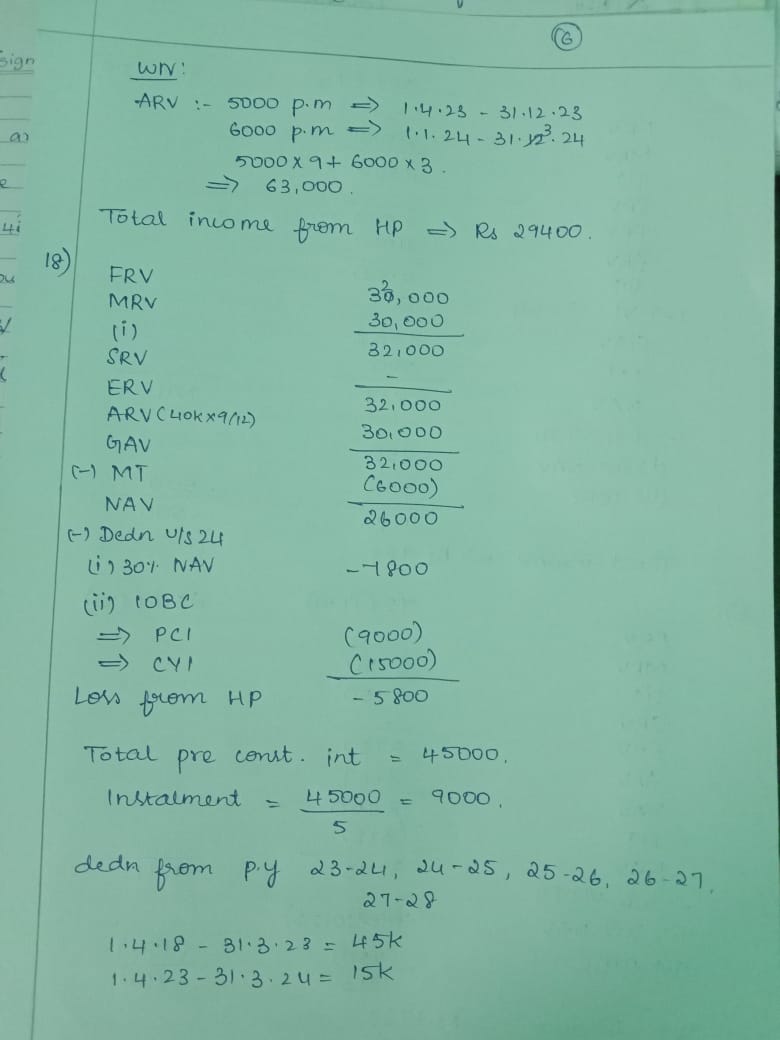 6
WN:
ARV :- 5000 p.m => 1.4.23 - 31.12.23
6000 p.m => 1.1.24 - 31.3.24
5000 x 9 + 6000 x 3.
=> 63,000.
Total income from HP => Rs 29400.
18)
FRV 32,000
MRV 30,000
(i) 32,000
SRV -
ERV 32,000
ARV (40k x 9/12) 30,000
GAV 32,000
(-) MT (6000)
NAV 26000
(-) Dedn u/s 24
(i) 30% NAV -7800
(ii) IOBC
=> PCI (9000)
=> CYI (15000)
Loss from HP - 5800
Total pre const. int = 45000.
Instalment = 45000/5 = 9000.
dedn from p.y 23-24, 24-25, 25-26, 26-27,
27-28
1.4.18 - 31.3.23 = 45k
1.4.23 - 31.3.24 = 15k